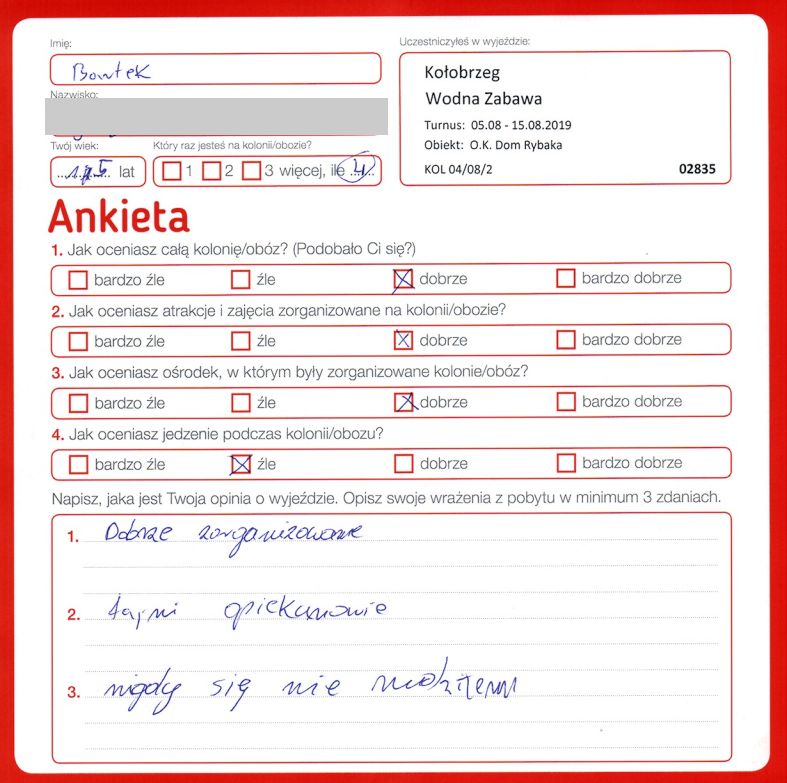 Imię:
Bartek
Nazwisko:
Twój wiek:
Który raz jesteś na kolonii/obozie?
15 lat
1 2 3 więcej, ile 4
Uczestniczyłeś w wyjeździe:
Kołobrzeg
Wodna Zabawa
Turnus: 05.08 - 15.08.2019
Obiekt: O.K. Dom Rybaka
KOL 04/08/2 02835
Ankieta
1. Jak oceniasz całą kolonię/obóz? (Podobało Ci się?)
bardzo źle źle dobrze bardzo dobrze
2. Jak oceniasz atrakcje i zajęcia zorganizowane na kolonii/obozie?
bardzo źle źle dobrze bardzo dobrze
3. Jak oceniasz ośrodek, w którym były zorganizowane kolonie/obóz?
bardzo źle źle dobrze bardzo dobrze
4. Jak oceniasz jedzenie podczas kolonii/obozu?
bardzo źle źle dobrze bardzo dobrze
Napisz, jaka jest Twoja opinia o wyjeździe. Opisz swoje wrażenia z pobytu w minimum 3 zdaniach.
1. Dobrze zorganizowane
2. fajni opiekunowie
3. nigdy się nie nudziłem